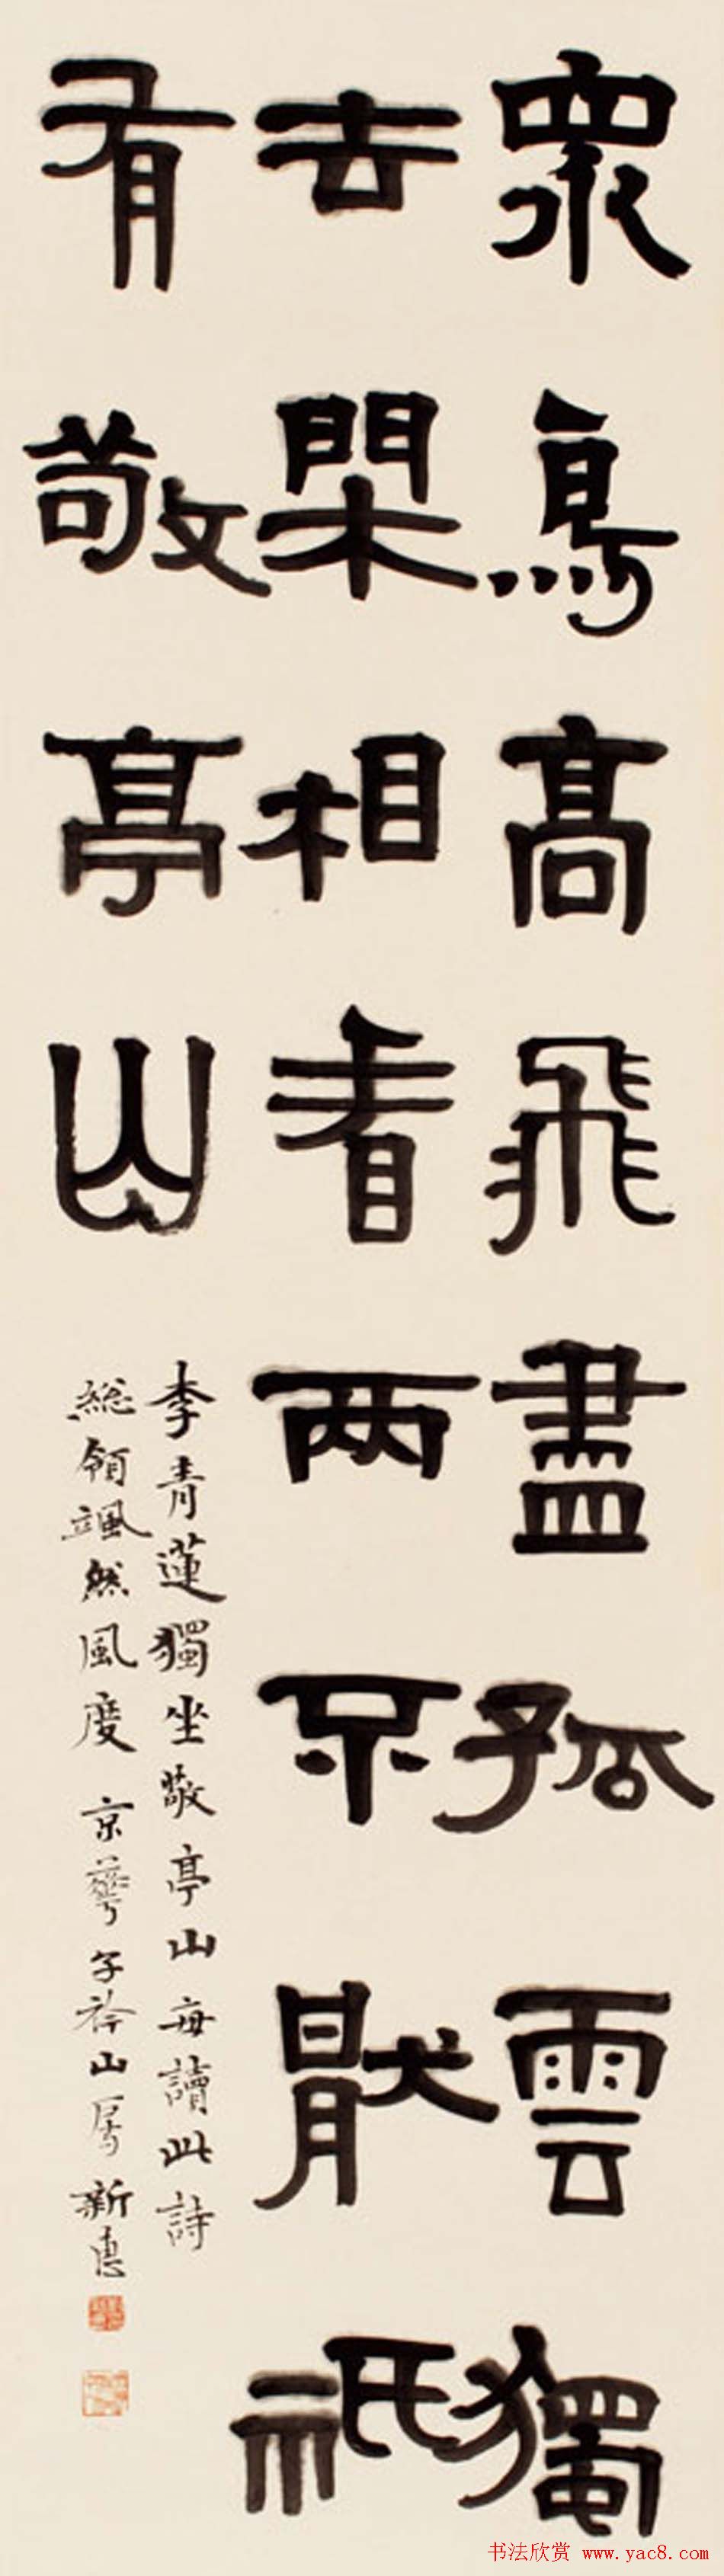 衆鳥高飛盡孤雲獨
去閑相看两不猒祇
有敬亭山
李青蓮獨坐敬亭山每讀此詩
総領颯然風度京華子衿山房新惠
书法欣赏 www.yac8.com